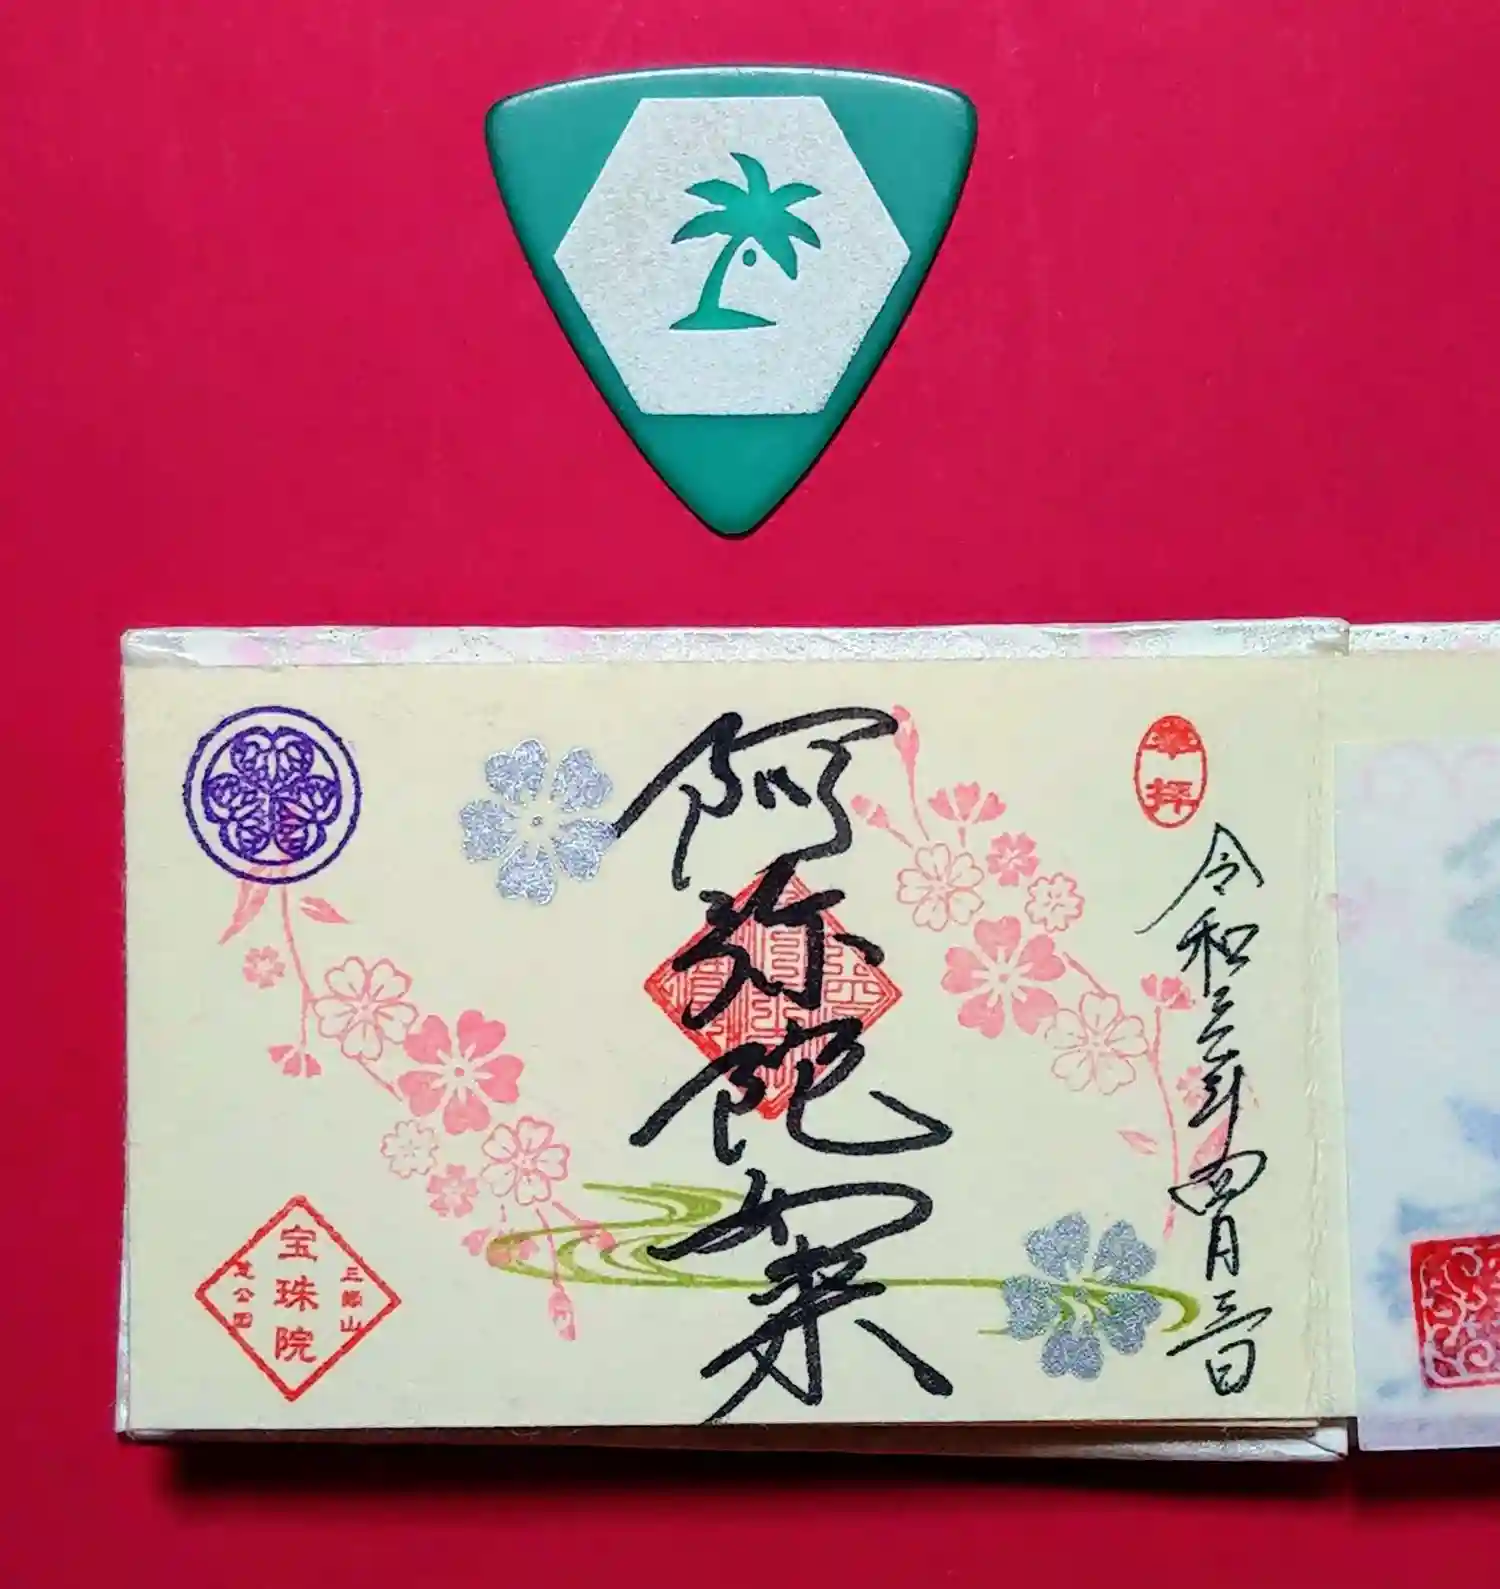 奉拝
令和三年四月三日
阿弥陀如来
三縁山
宝珠院
芝公園